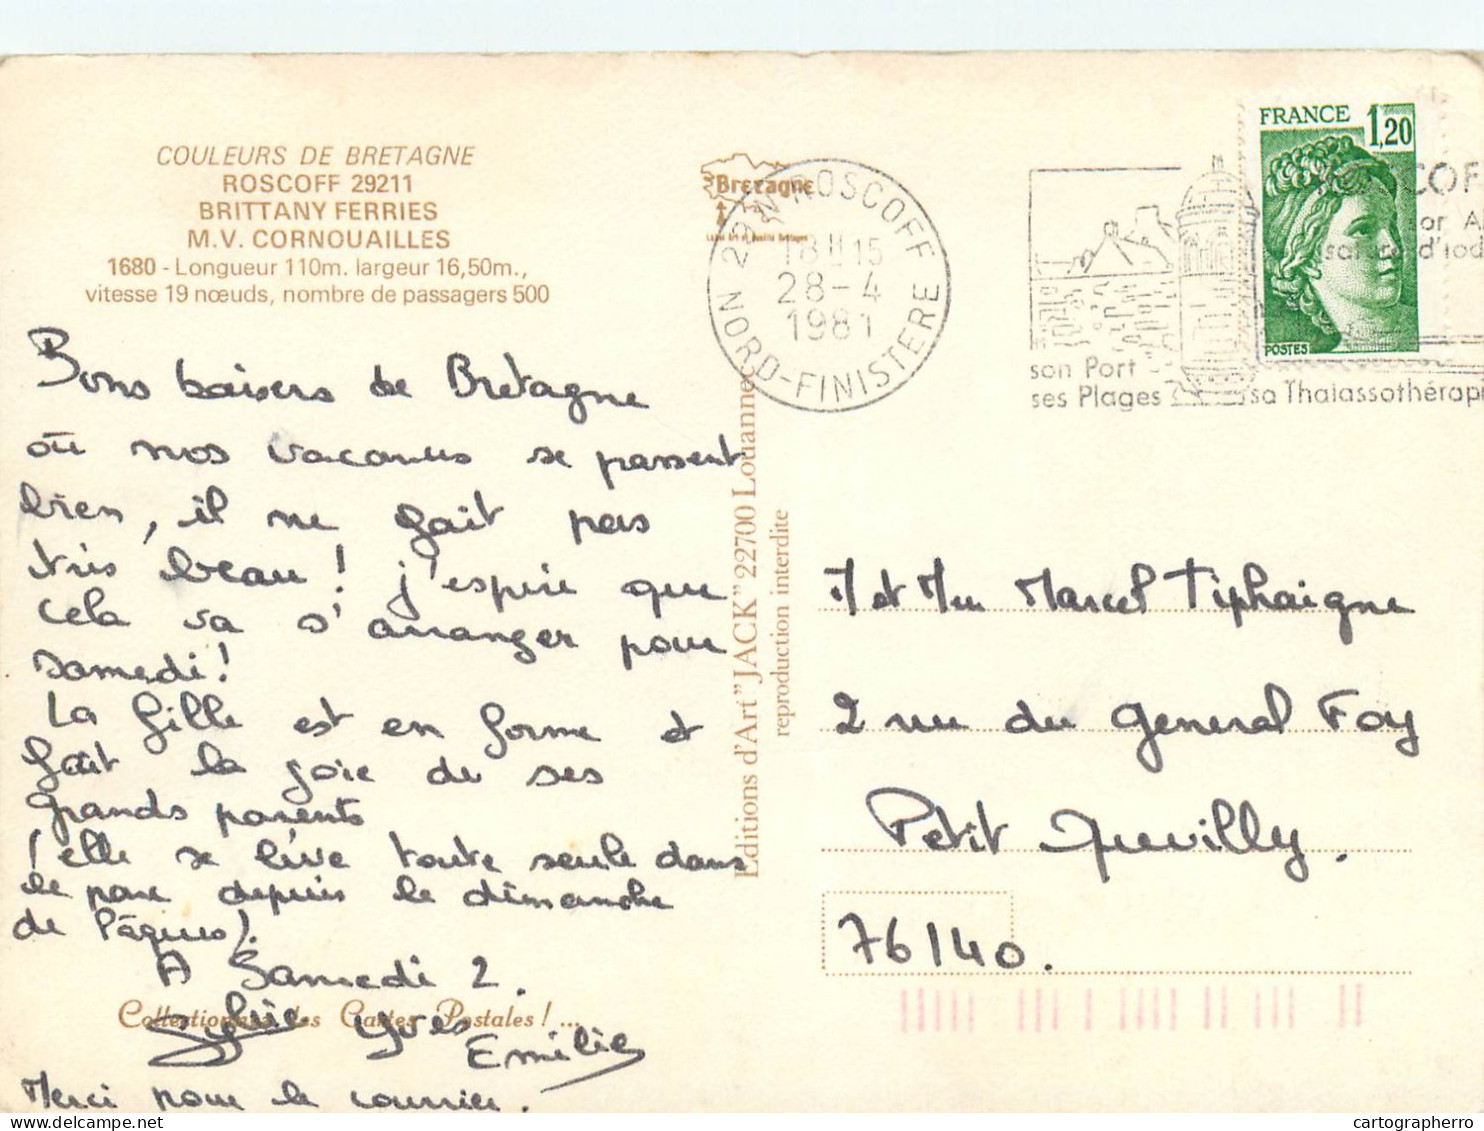 COULEURS DE BRETAGNE
ROSCOFF 29211
BRITTANY FERRIES
M.V. CORNOUAILLES
1680 - Longueur 110m. largeur 16,50m.,
vitesse 19 nœuds, nombre de passagers 500
Bons baisers de Bretagne
où nos vacances se passent
bien, il ne fait pas
très beau! j'espère que
cela va s'arranger pour
samedi!
La fille est en forme et
fait la joie de ses
grands parents
(elle se lève toute seule dans
le parc depuis le dimanche
de Pâques).
A Samedi 2.
Collectionnez les Cartes Postales! ...
Sylvie Yves
Emilie
Merci pour le courrier.
Bretagne
Label Art et Qualité Bretagne
29 N ROSCOFF
18H15
28-4
1981
NORD-FINISTERE
son Port
ses Plages
sa Thalassothérap
FRANCE 1,20
POSTES
Editions d'Art "JACK" 22700 Louannec
reproduction interdite
M et Mme Marcel Tiphaigne
2 rue du General Foy
Petit Quevilly.
76140.
cartographerro